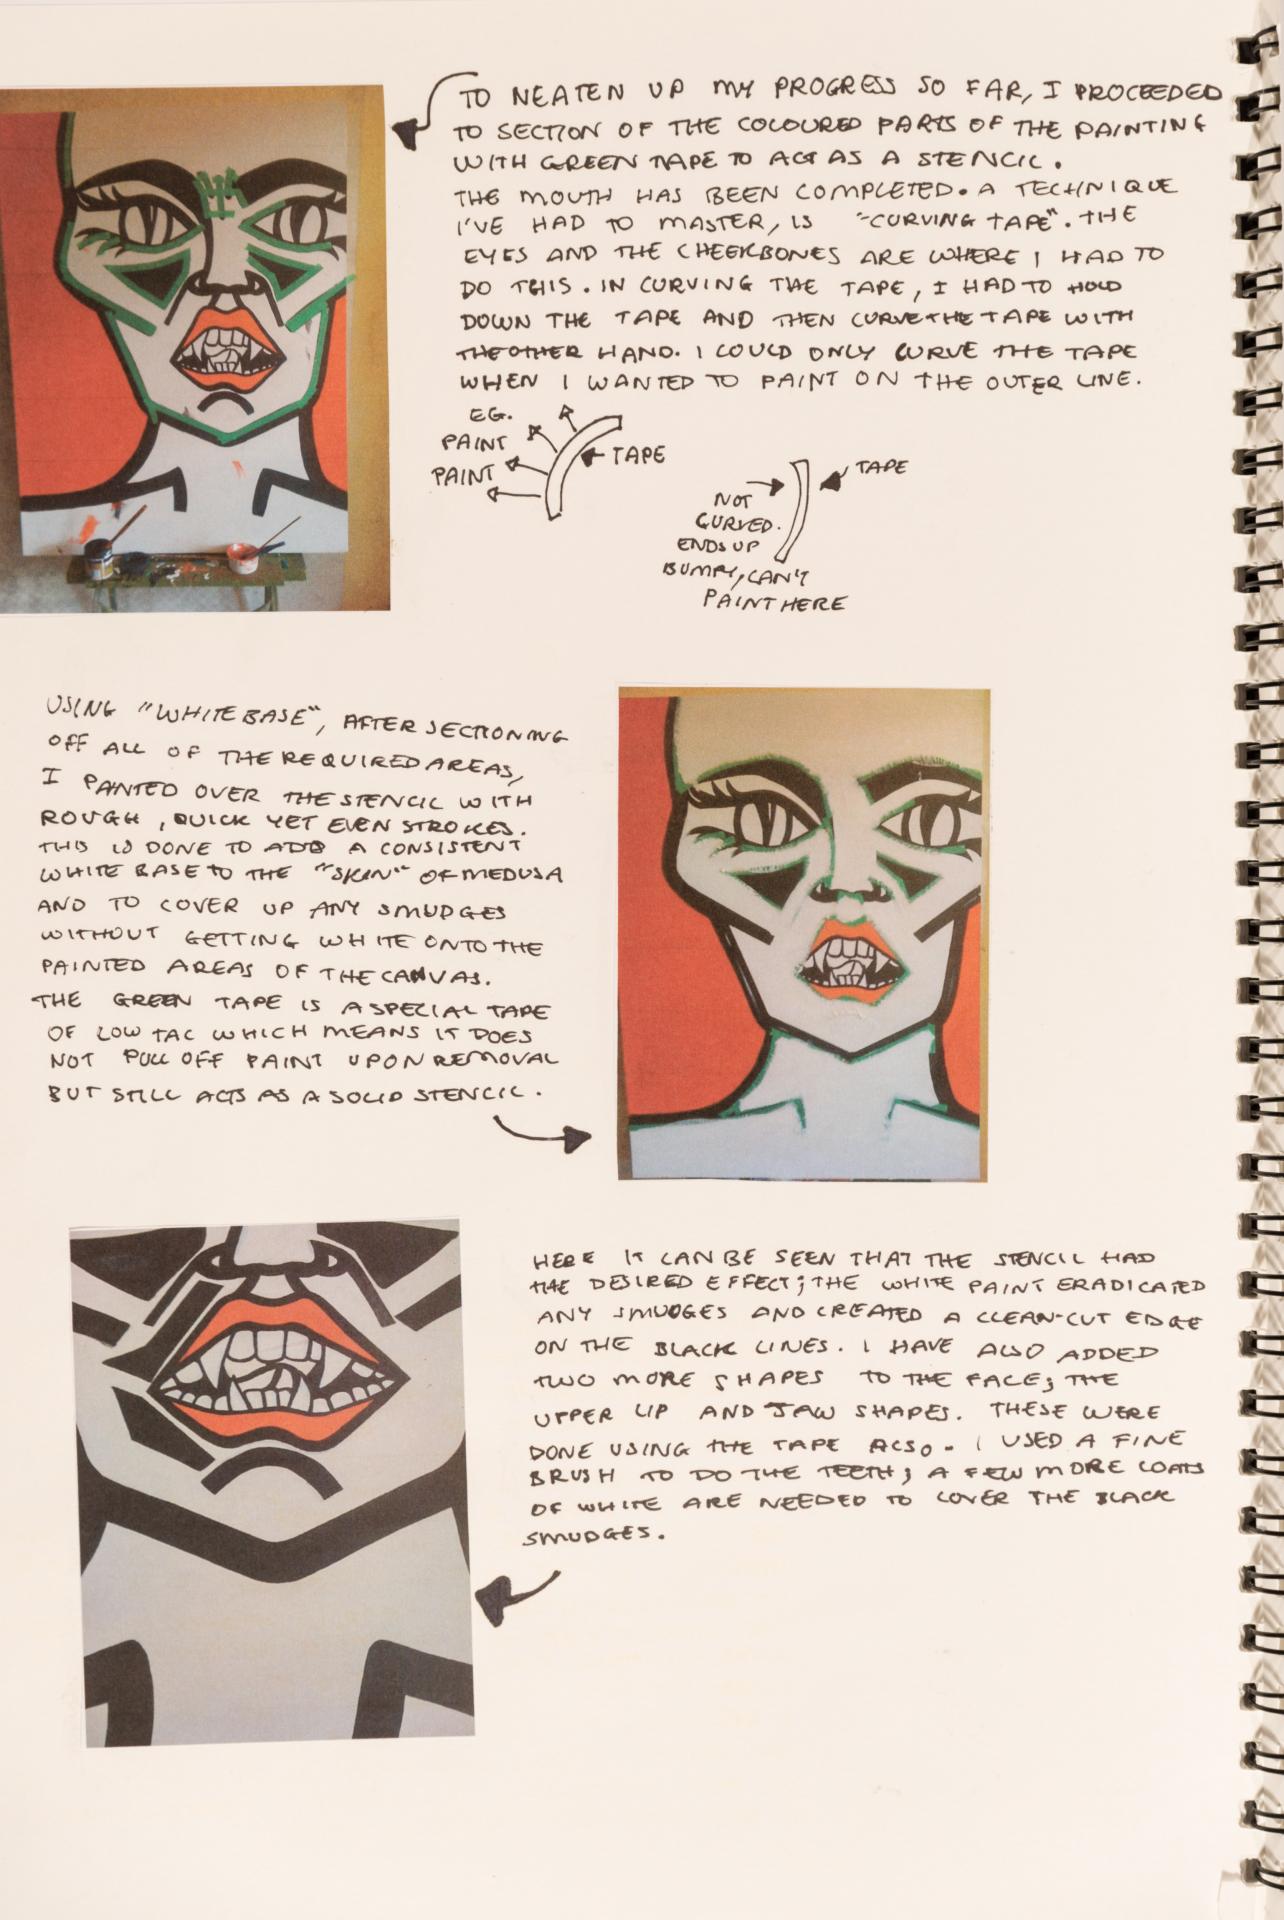 TO NEATEN UP MY PROGRESS SO FAR, I PROCEEDED
TO SECTION OF THE COLOURED PARTS OF THE PAINTING
WITH GREEN TAPE TO ACT AS A STENCIL.
THE MOUTH HAS BEEN COMPLETED. A TECHNIQUE
I'VE HAD TO MASTER, IS "CURVING TAPE". THE
EYES AND THE CHEEKBONES ARE WHERE I HAD TO
DO THIS. IN CURVING THE TAPE, I HAD TO HOLD
DOWN THE TAPE AND THEN CURVE THE TAPE WITH
THE OTHER HAND. I COULD ONLY CURVE THE TAPE
WHEN I WANTED TO PAINT ON THE OUTER LINE.
EG.
PAINT
PAINT
TAPE
TAPE
NOT
CURVED.
ENDS UP
BUMPY, CAN'T
PAINT HERE
USING "WHITE BASE", AFTER SECTIONING
OFF ALL OF THE REQUIRED AREAS,
I PANTED OVER THE STENCIL WITH
ROUGH, QUICK YET EVEN STROKES.
THIS IS DONE TO ADD A CONSISTENT
WHITE BASE TO THE "SKIN" OF MEDUSA
AND TO COVER UP ANY SMUDGES
WITHOUT GETTING WHITE ONTO THE
PAINTED AREAS OF THE CANVAS.
THE GREEN TAPE IS A SPECIAL TAPE
OF LOW TAC WHICH MEANS IT DOES
NOT PULL OFF PAINT UPON REMOVAL
BUT STILL ACTS AS A SOLID STENCIL.
HERE IT CAN BE SEEN THAT THE STENCIL HAD
THE DESIRED EFFECT; THE WHITE PAINT ERADICATED
ANY SMUDGES AND CREATED A CLEAN-CUT EDGE
ON THE BLACK LINES. I HAVE ALSO ADDED
TWO MORE SHAPES TO THE FACE; THE
UPPER LIP AND JAW SHAPES. THESE WERE
DONE USING THE TAPE ALSO. I USED A FINE
BRUSH TO DO THE TEETH; A FEW MORE COATS
OF WHITE ARE NEEDED TO COVER THE BLACK
SMUDGES.